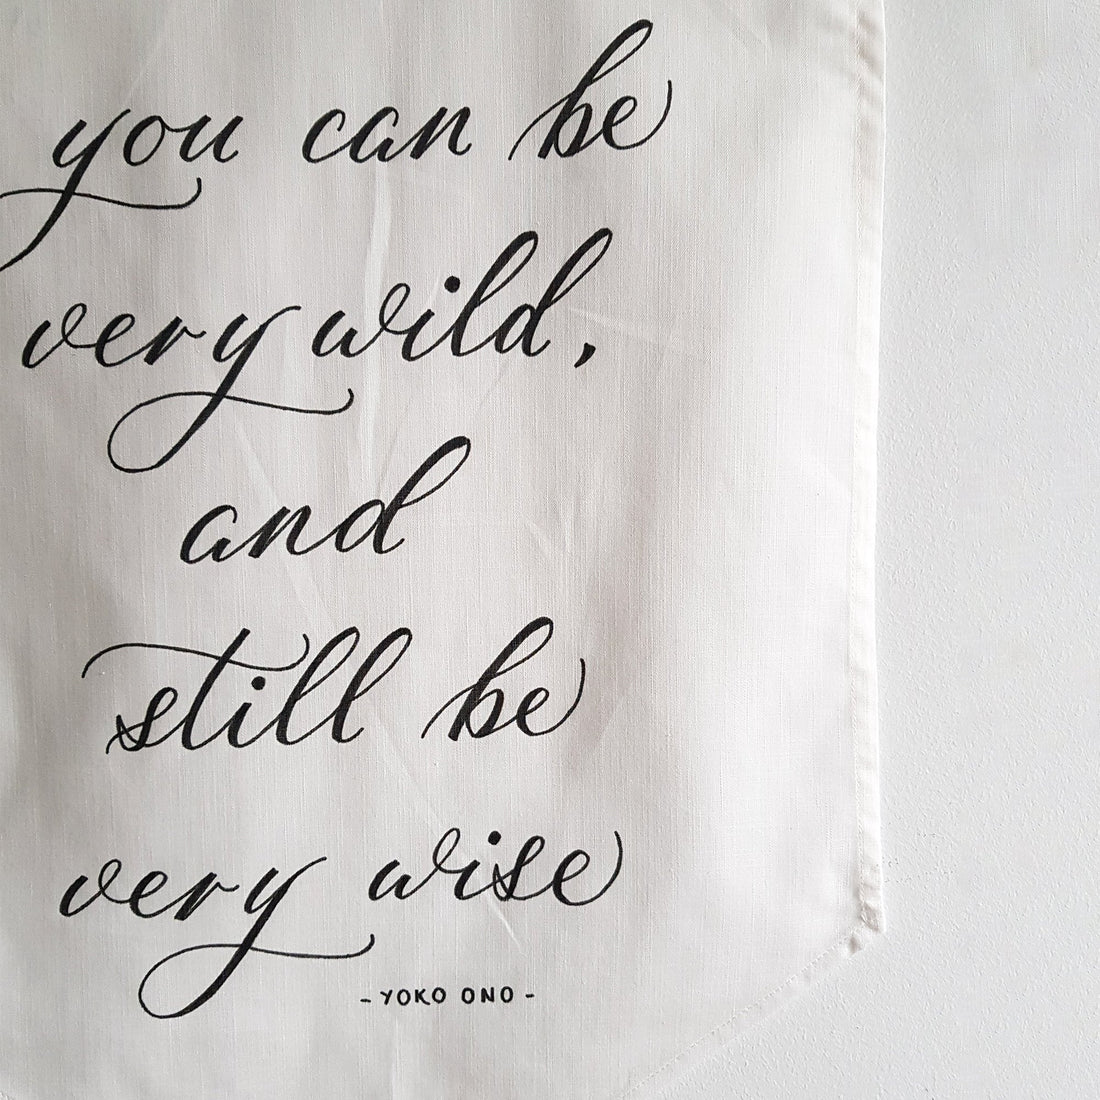 you can be
very wild,
and
still be
very wise
- YOKO ONO -